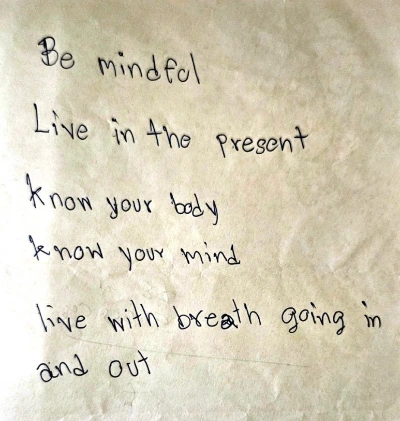 Be mindful
Live in the present
know your body
know your mind
live with breath going in
and out